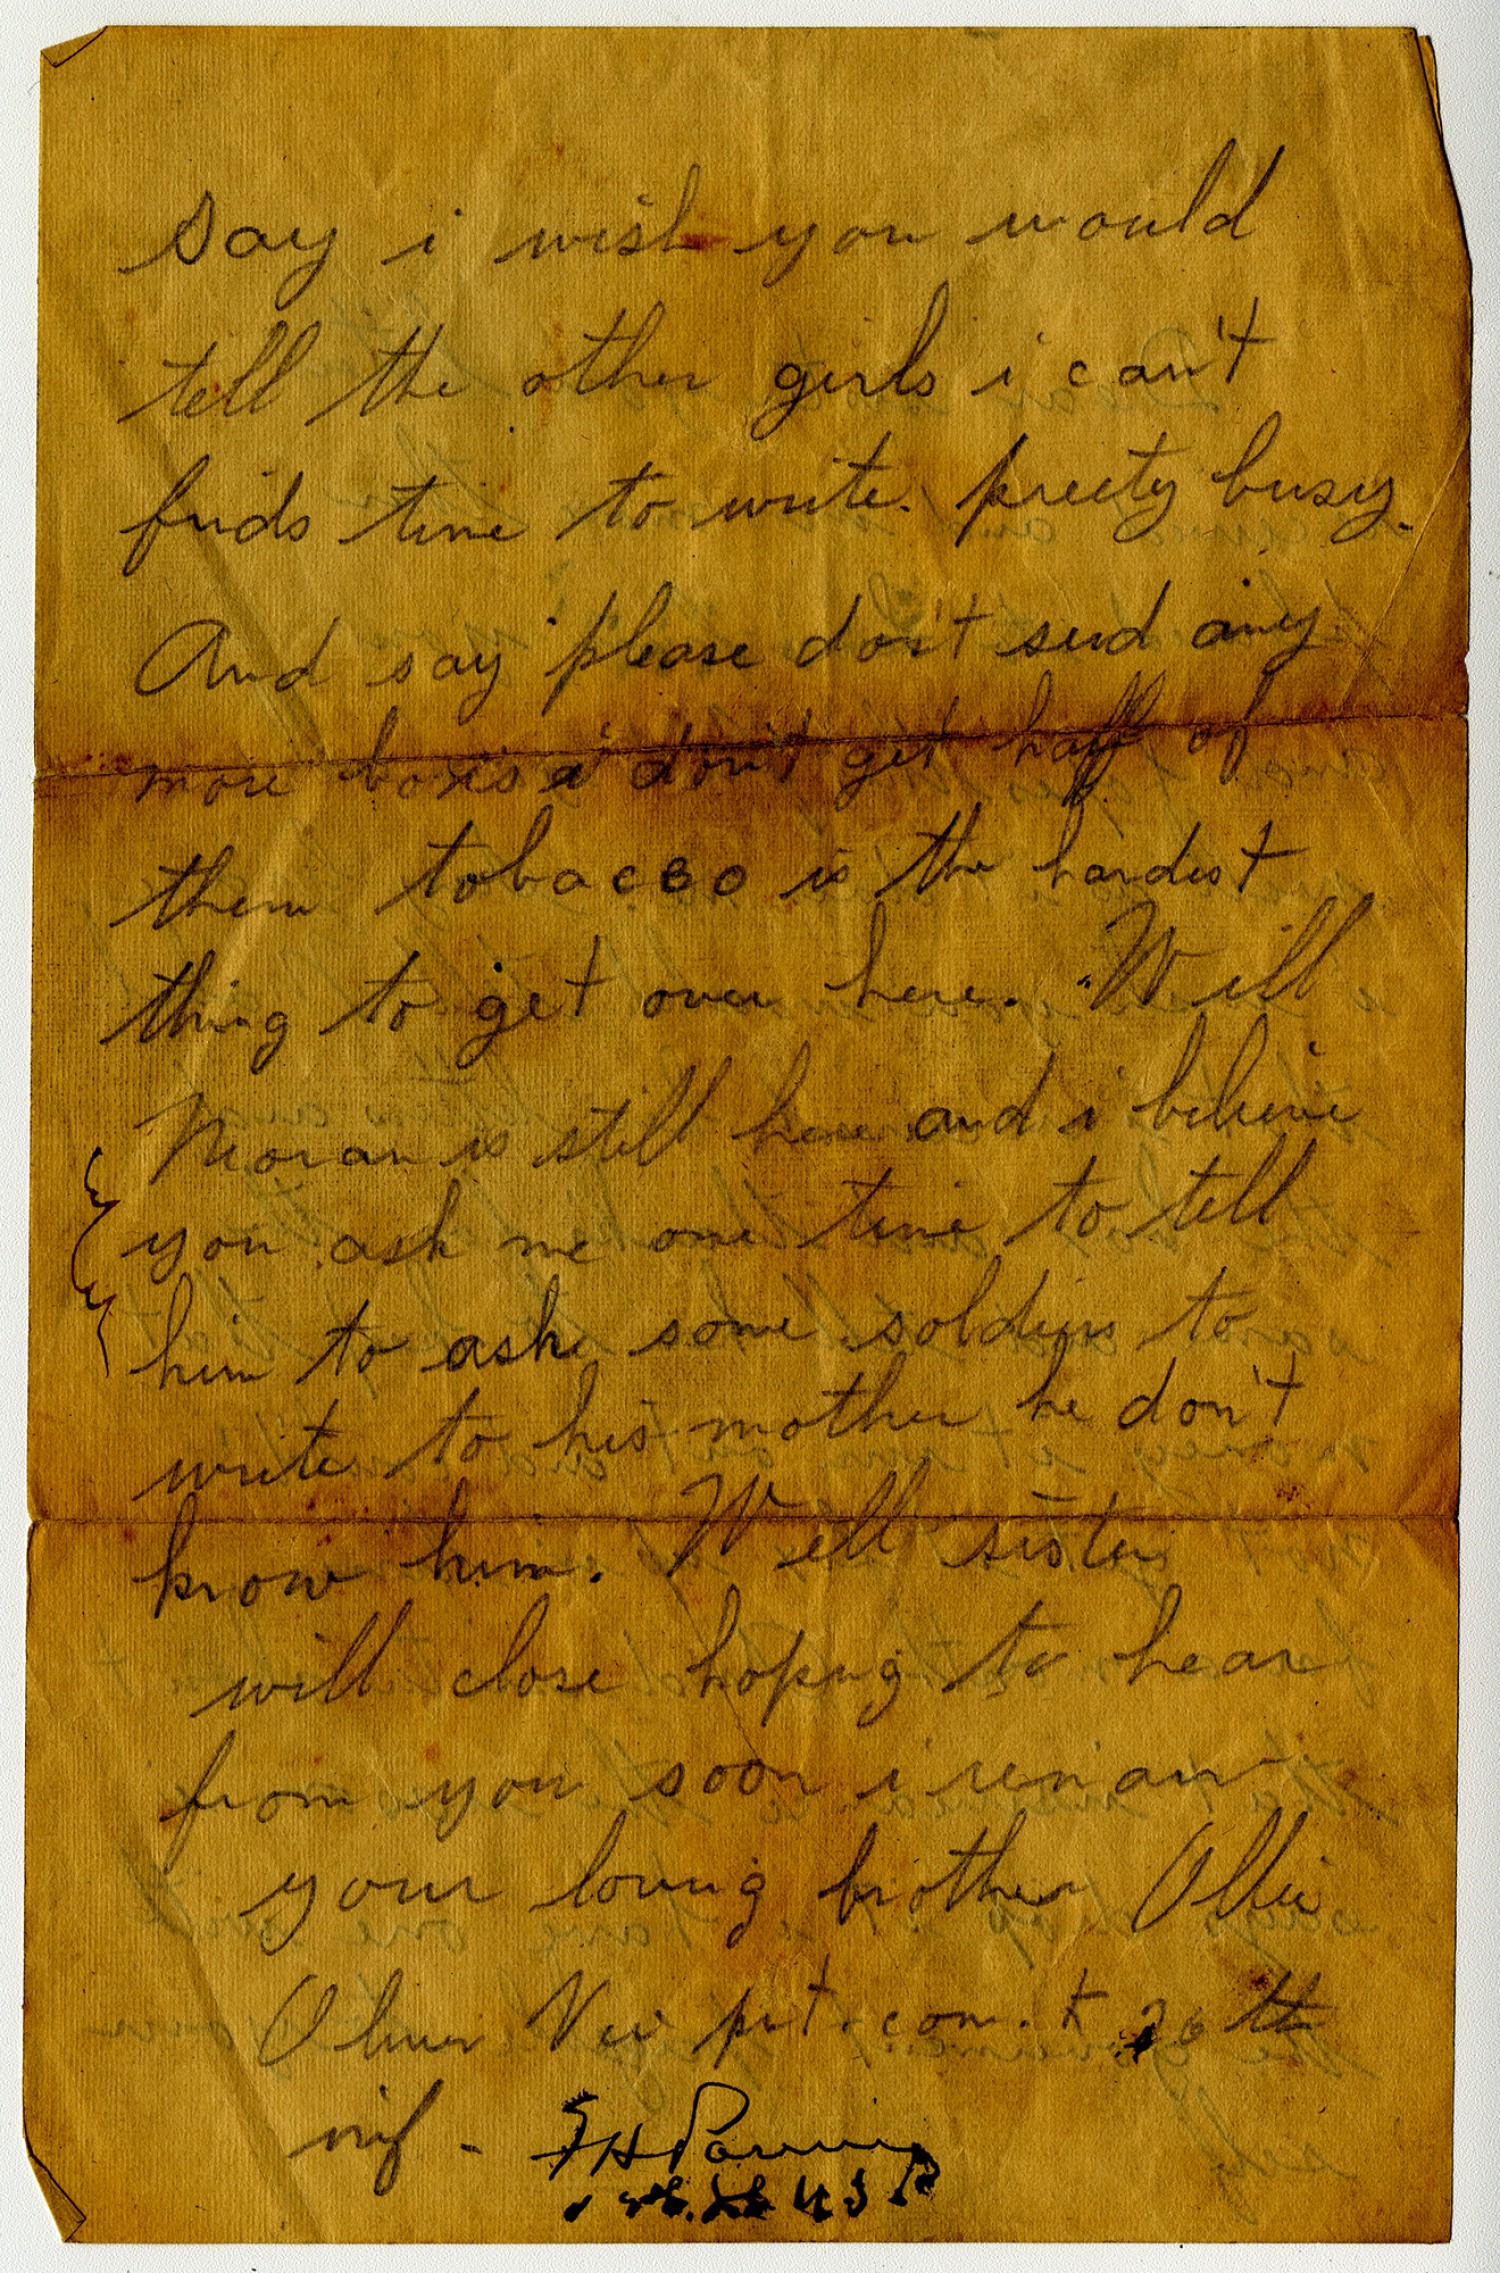 Say i wish you would
tell the other girls i can't
finds time to write. preety busy.
And say please don't send any
more boxes i don't get half of
them tobacco is the hardest
thing to get over here. Will
Moran is still here and i believe
you ask me one time to tell
him to ask some soldiers to
write to his mother he don't
know him. Well sister
will close hoping to hear
from you soon i remain
your loving brother Ollie
Oliver pvt. com. K 26 th
inf -